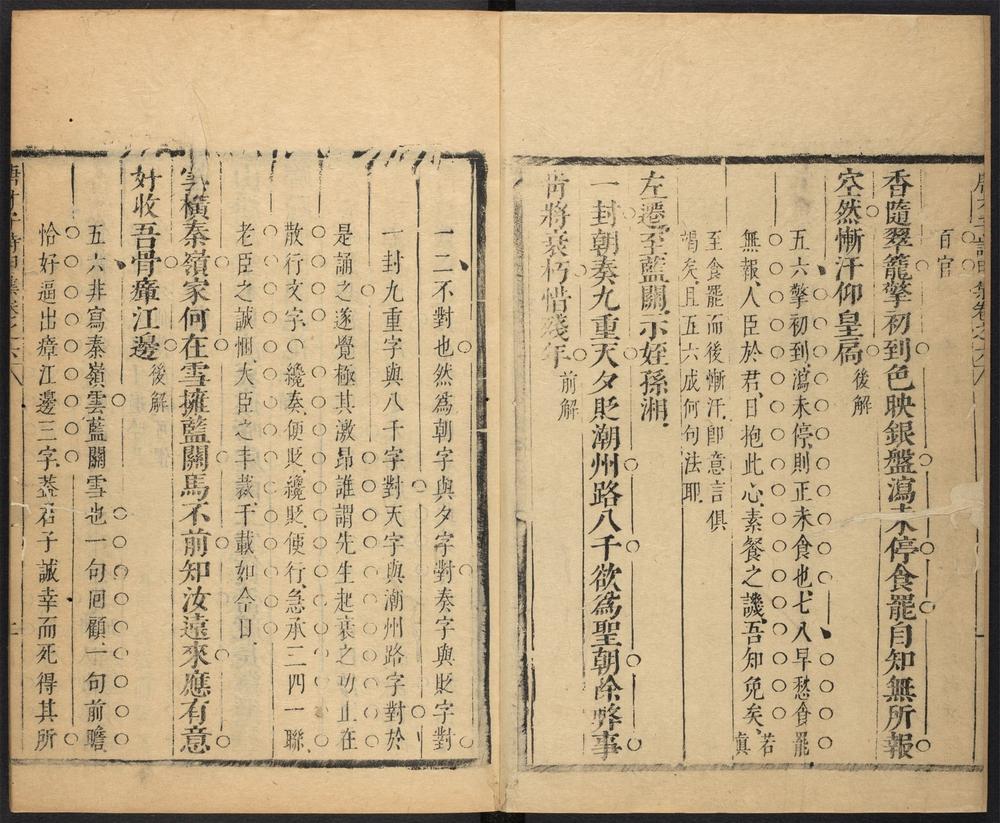 百官
香隨翠籠擎初到色映銀盤瀉未停食罷自知無所報
空然慚汗仰皇扃 後解
五六擎初到瀉未停則正未食也七八早愁食罷
無報人臣於君日抱此心素餐之譏吾知免矣若真
至食罷而後慚汗卽意言俱
竭矣且五六成何句法耶
左遷至藍關示姪孫湘
一封朝奏九重天夕貶潮州路八千欲爲聖朝除弊事
肯將衰朽惜殘年 前解
一二不對也然爲朝字與夕字對奏字與貶字對
一封九重字與八千字對天字與潮州路字對於
是誦之遂覺極其激昂誰謂先生起衰之功止在
散行文字纔奏便貶纔貶便行急承三四一聯
老臣之誠悃大臣之丰裁千載如今日
雲橫秦嶺家何在雪擁藍關馬不前知汝遠來應有意
好收吾骨瘴江邊 後解
五六非寫秦嶺雲藍關雪也一句囘顧一句前瞻
恰好逼出瘴江邊三字葢君子誠幸而死得其所